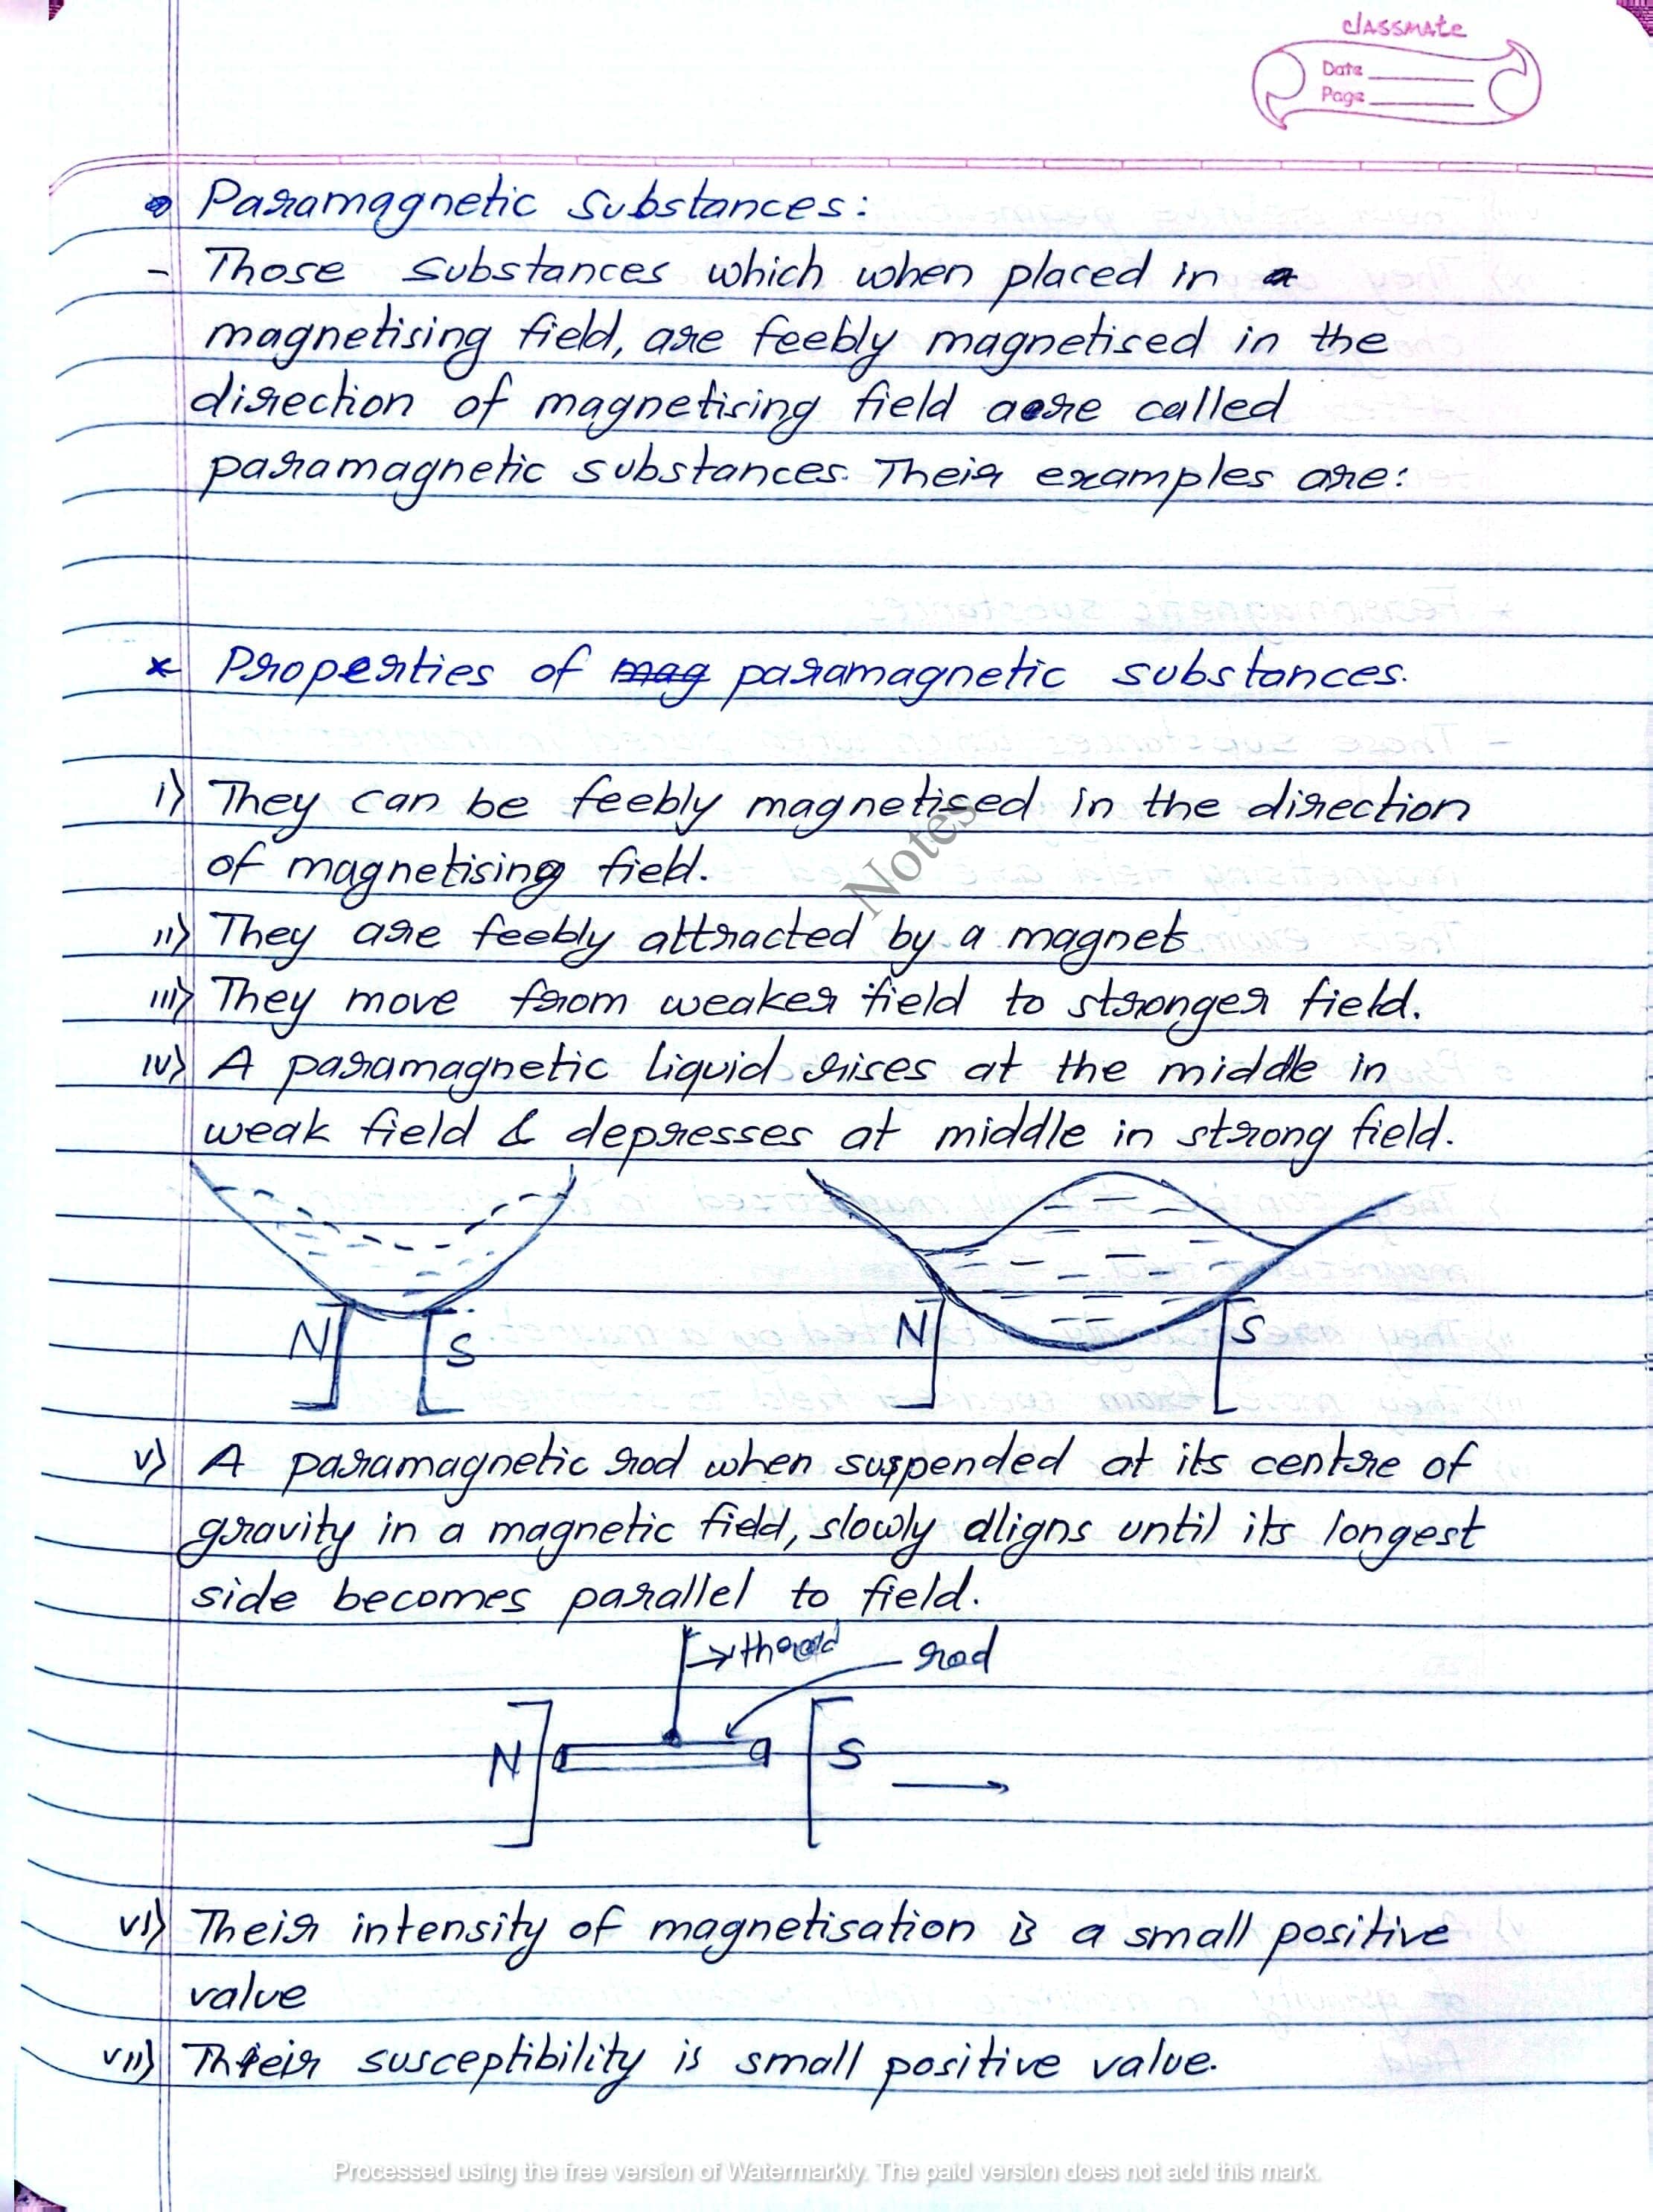 classmate
Date
Page
Paramagnetic Substances:
- Those substances which when placed in a
magnetising field, are feebly magnetised in the
direction of magnetising field are called
paramagnetic substances. Their examples are:
* Properties of mag paramagnetic substances.
i) They can be feebly magnetised in the direction
of magnetising field.
ii) They are feebly attracted by a magnet
iii) They move from weaker field to stronger field.
iv) A paramagnetic liquid rises at the middle in
weak field & depresses at middle in strong field.
N S N S
v) A paramagnetic rod when suspended at its centre of
gravity in a magnetic field, slowly aligns until its longest
side becomes parallel to field.
thread rod
N S
vi) Their intensity of magnetisation is a small positive
value
vii) Their susceptibility is small positive value.
Notes
Processed using the free version of Watermarkly. The paid version does not add this mark.